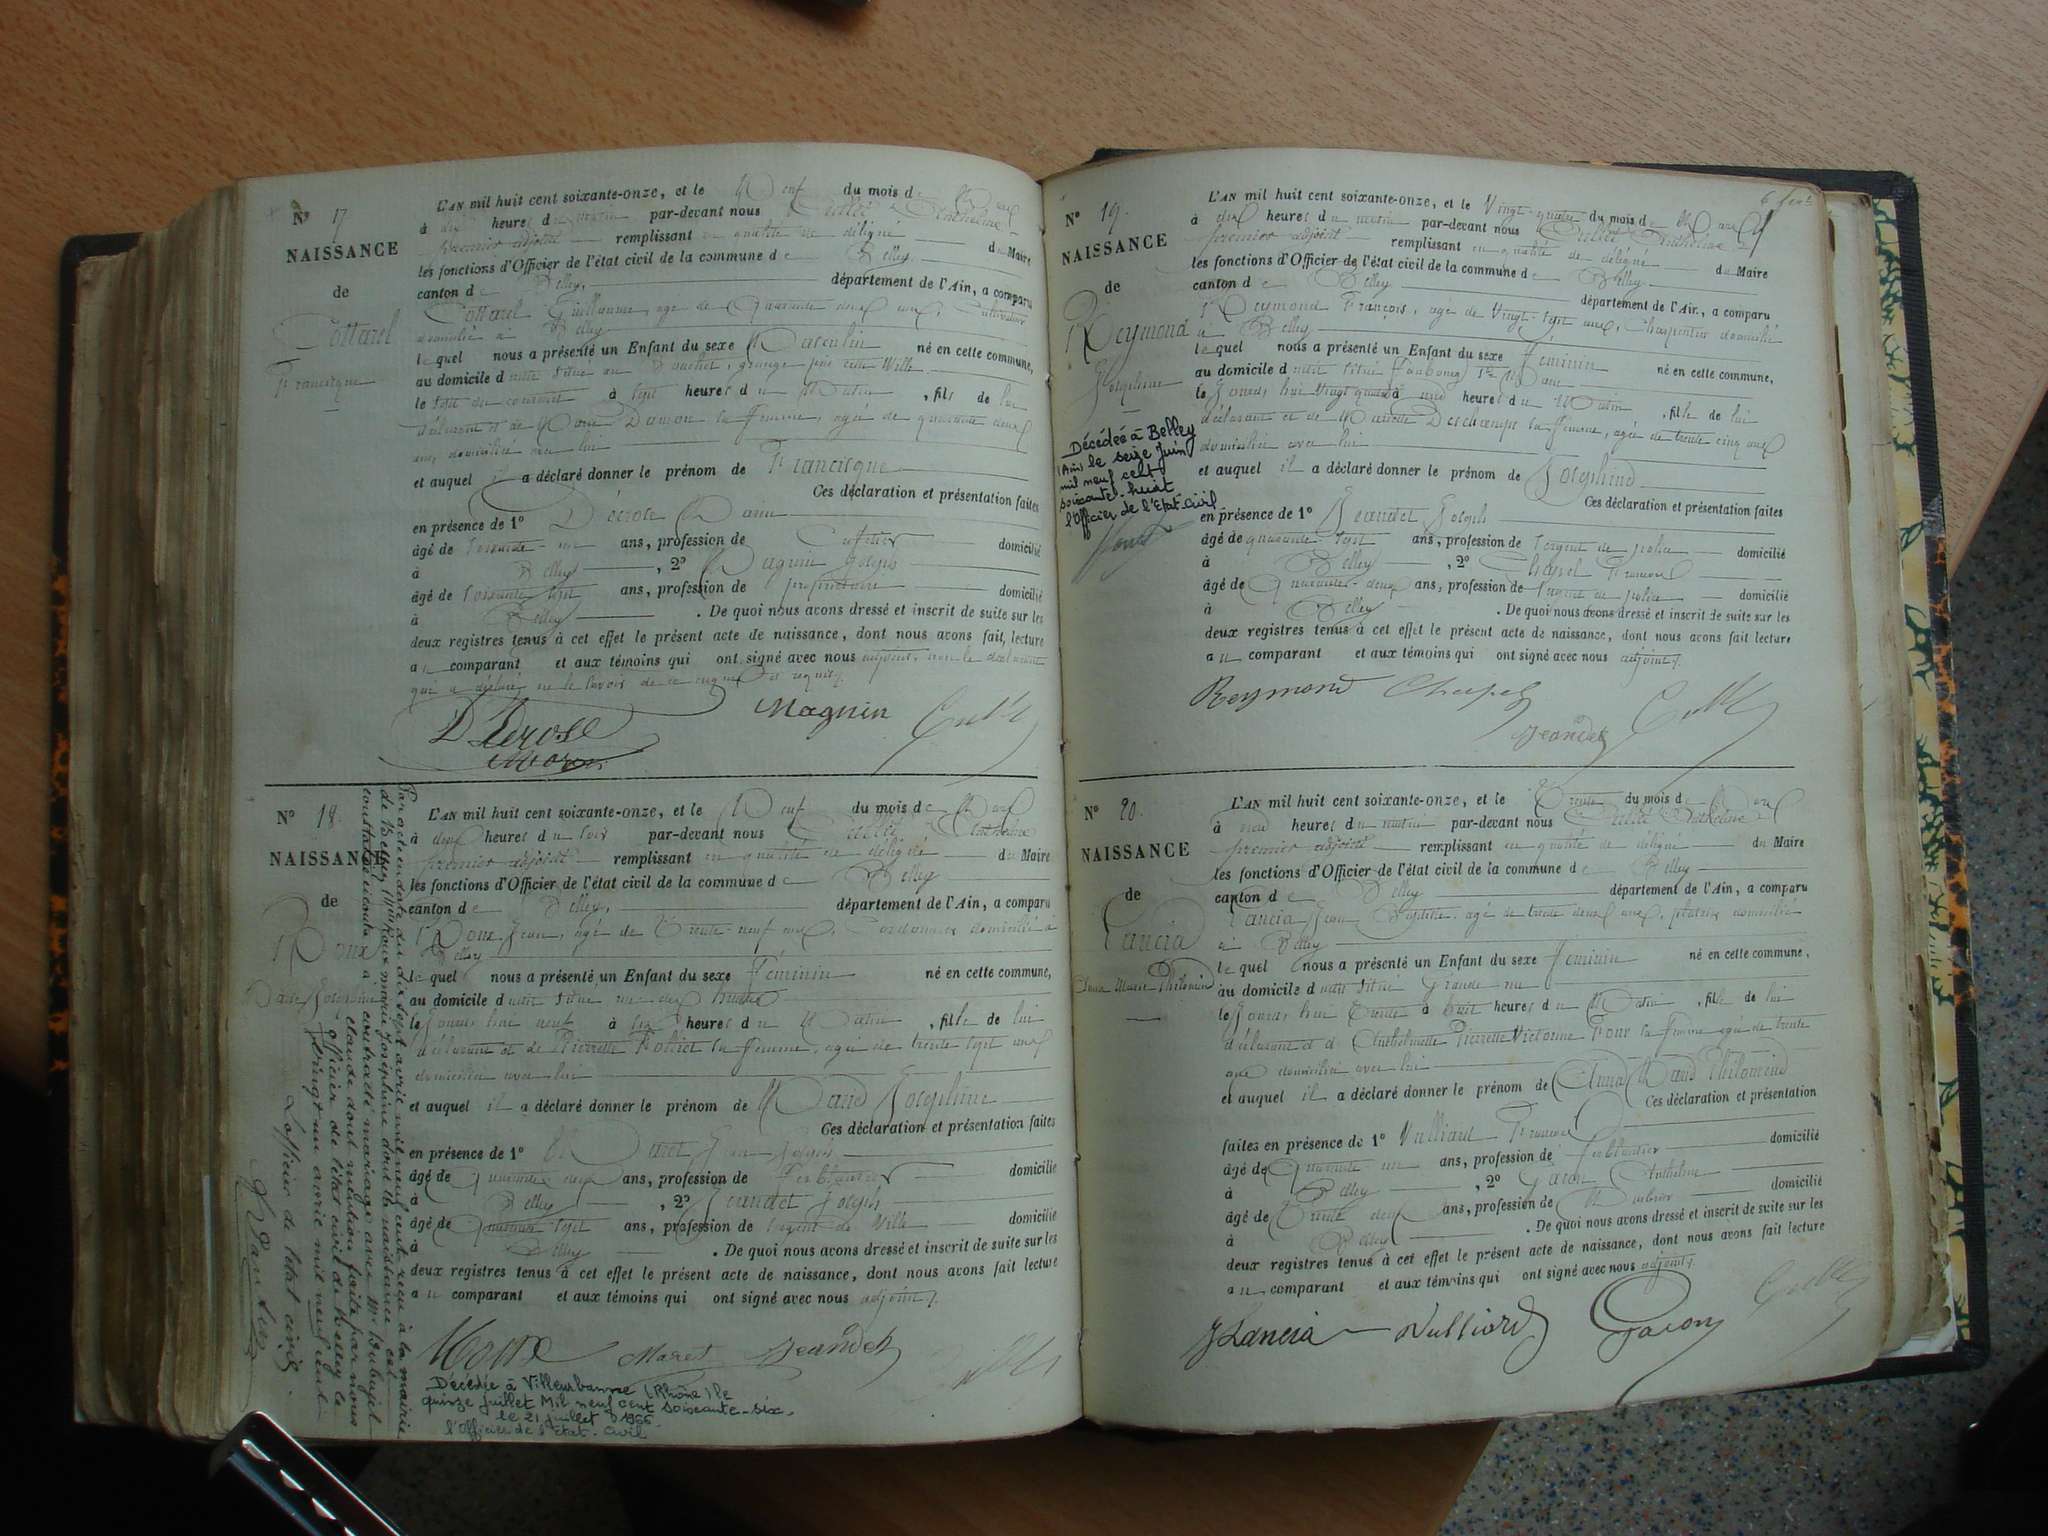 N° 17
NAISSANCE
de
Cottarel
Francisque
L'AN mil huit cent soixante-onze, et le Neuf du mois de Mars
à dix heures du matin par-devant nous Cullet Anthelme
premier adjoint remplissant en qualité de délégué du Maire
les fonctions d'Officier de l'état civil de la commune de Belley
canton de Belley, département de l'Ain, a comparu
Cottarel Guillaume, agé de Quarante deux ans, Cultivateur
domicilié à Belley
le quel nous a présenté un Enfant du sexe Masculin né en cette commune,
au domicile d situé au grange près cette Ville
le sept du courant à sept heures du Matin, fils de lui
déclarant et de Marie sa femme, agée de quarante deux
ans, domiciliée avec lui
et auquel il a déclaré donner le prénom de Francisque
Ces déclaration et présentation faites
en présence de 1° Dérose
âgé de soixante-un ans, profession de domicilié
à Belley, 2° Magnin Joseph
âgé de soixante sept ans, profession de propriétaire domicilié
à Belley. De quoi nous avons dressé et inscrit de suite sur les
deux registres tenus à cet effet le présent acte de naissance, dont nous avons fait, lecture
au comparant et aux témoins qui ont signé avec nous adjoint, non le déclarant
qui a déclaré ne le savoir de ce enquis et requis.
Dérose Magnin Cullet
N° 18
NAISSANCE
de
Roux
Marie Joséphine
L'AN mil huit cent soixante-onze, et le Neuf du mois de Mars
à deux heures du soir par-devant nous Cullet Anthelme
premier adjoint remplissant en qualité de délégué du Maire
les fonctions d'Officier de l'état civil de la commune de Belley
canton de Belley, département de l'Ain, a comparu
Roux Jean, agé de Trente-neuf ans, Cordonnier domicilié à
Belley
le quel nous a présenté un Enfant du sexe Féminin né en cette commune,
au domicile d situé rue des
le Jourd'hui neuf à six heures du Matin, fille de lui
déclarant et de Pierrette Rolliet sa femme, agée de trente sept ans
domiciliée avec lui
et auquel il a déclaré donner le prénom de Marie Joséphine
Ces déclaration et présentation faites
en présence de 1° Maret Jean Joseph
âgé de Quarante deux ans, profession de Ferblantier domicilié
à Belley, 2° Jeandet Joseph
âgé de Quarante sept ans, profession de Sergent de Ville domicilié
à Belley. De quoi nous avons dressé et inscrit de suite sur les
deux registres tenus à cet effet le présent acte de naissance, dont nous avons fait lecture
au comparant et aux témoins qui ont signé avec nous adjoint.
Roux Maret Jeandet Cullet
Décédée à Villeurbanne (Rhône) le
quinze juillet Mil neuf cent soixante-six.
le 21 juillet 1966
l'Officier de l'Etat-Civil
Par acte en date du dix sept avril mil neuf cent reçu à la mairie
de Belley, Mlle Roux Marie Joséphine dont la naissance est
constatée ci contre a contracté mariage avec Mr Dubujet
Claude dont mention faite par nous
officier de l'état civil de Belley le
vingt un avril mil neuf cent
L'officier de l'état civil.
N° 19.
NAISSANCE
de
Reymond
Joséphine
Décédée à Belley
(Ain) le seize Juin
mil neuf cent
soixante-huit
l'Officier de l'Etat-Civil
L'AN mil huit cent soixante-onze, et le Vingt-quatre du mois de Mars
à deux heures du matin par-devant nous Cullet Anthelme
premier adjoint remplissant en qualité de délégué du Maire
les fonctions d'Officier de l'état civil de la commune de Belley
canton de Belley département de l'Ain, a comparu
Reymond François, agé de Vingt-sept ans, Charpentier domicilié
à Belley
le quel nous a présenté un Enfant du sexe Féminin né en cette commune,
au domicile d situé Faubourg
le Jourd'hui Vingt quatre à heures du Matin, fille de lui
déclarant et de Mariette Deschamps sa femme, agée de trente cinq ans
domiciliée avec lui
et auquel il a déclaré donner le prénom de Joséphine
Ces déclaration et présentation faites
en présence de 1° Jeandet Joseph
âgé de quarante-sept ans, profession de sergent de police domicilié
à Belley, 2° Chapel François
âgé de Quarante-deux ans, profession de Sergent de police domicilié
à Belley. De quoi nous avons dressé et inscrit de suite sur les
deux registres tenus à cet effet le présent acte de naissance, dont nous avons fait lecture
au comparant et aux témoins qui ont signé avec nous adjoint.
Reymond Chapel Jeandet Cullet
N° 20.
NAISSANCE
de
Lancia
Anna Marie Philomène
L'AN mil huit cent soixante-onze, et le Trente du mois de Mars
à heures du matin par-devant nous Cullet Anthelme
premier adjoint remplissant en qualité de délégué du Maire
les fonctions d'Officier de l'état civil de la commune de Belley
canton de Belley département de l'Ain, a comparu
Lancia Jean Baptiste agé de trente deux ans, domicilié
à Belley
le quel nous a présenté un Enfant du sexe Féminin né en cette commune,
au domicile d situé Grande rue
le Jourd'hui Trente à huit heures du Matin, fille de lui
déclarant et de Anthelmette Pierrette Victorine sa femme agée de trente
ans domiciliée avec lui
et auquel il a déclaré donner le prénom de Anna Marie Philomène
Ces déclaration et présentation
faites en présence de 1° Vulliard François
âgé de Quarante-un ans, profession de Ferblantier domicilié
à Belley, 2° Gacon Anthelme
âgé de Trente deux ans, profession de domicilié
à Belley. De quoi nous avons dressé et inscrit de suite sur les
deux registres tenus à cet effet le présent acte de naissance, dont nous avons fait lecture
au comparant et aux témoins qui ont signé avec nous adjoint.
J Lancia Vulliard Gacon Cullet